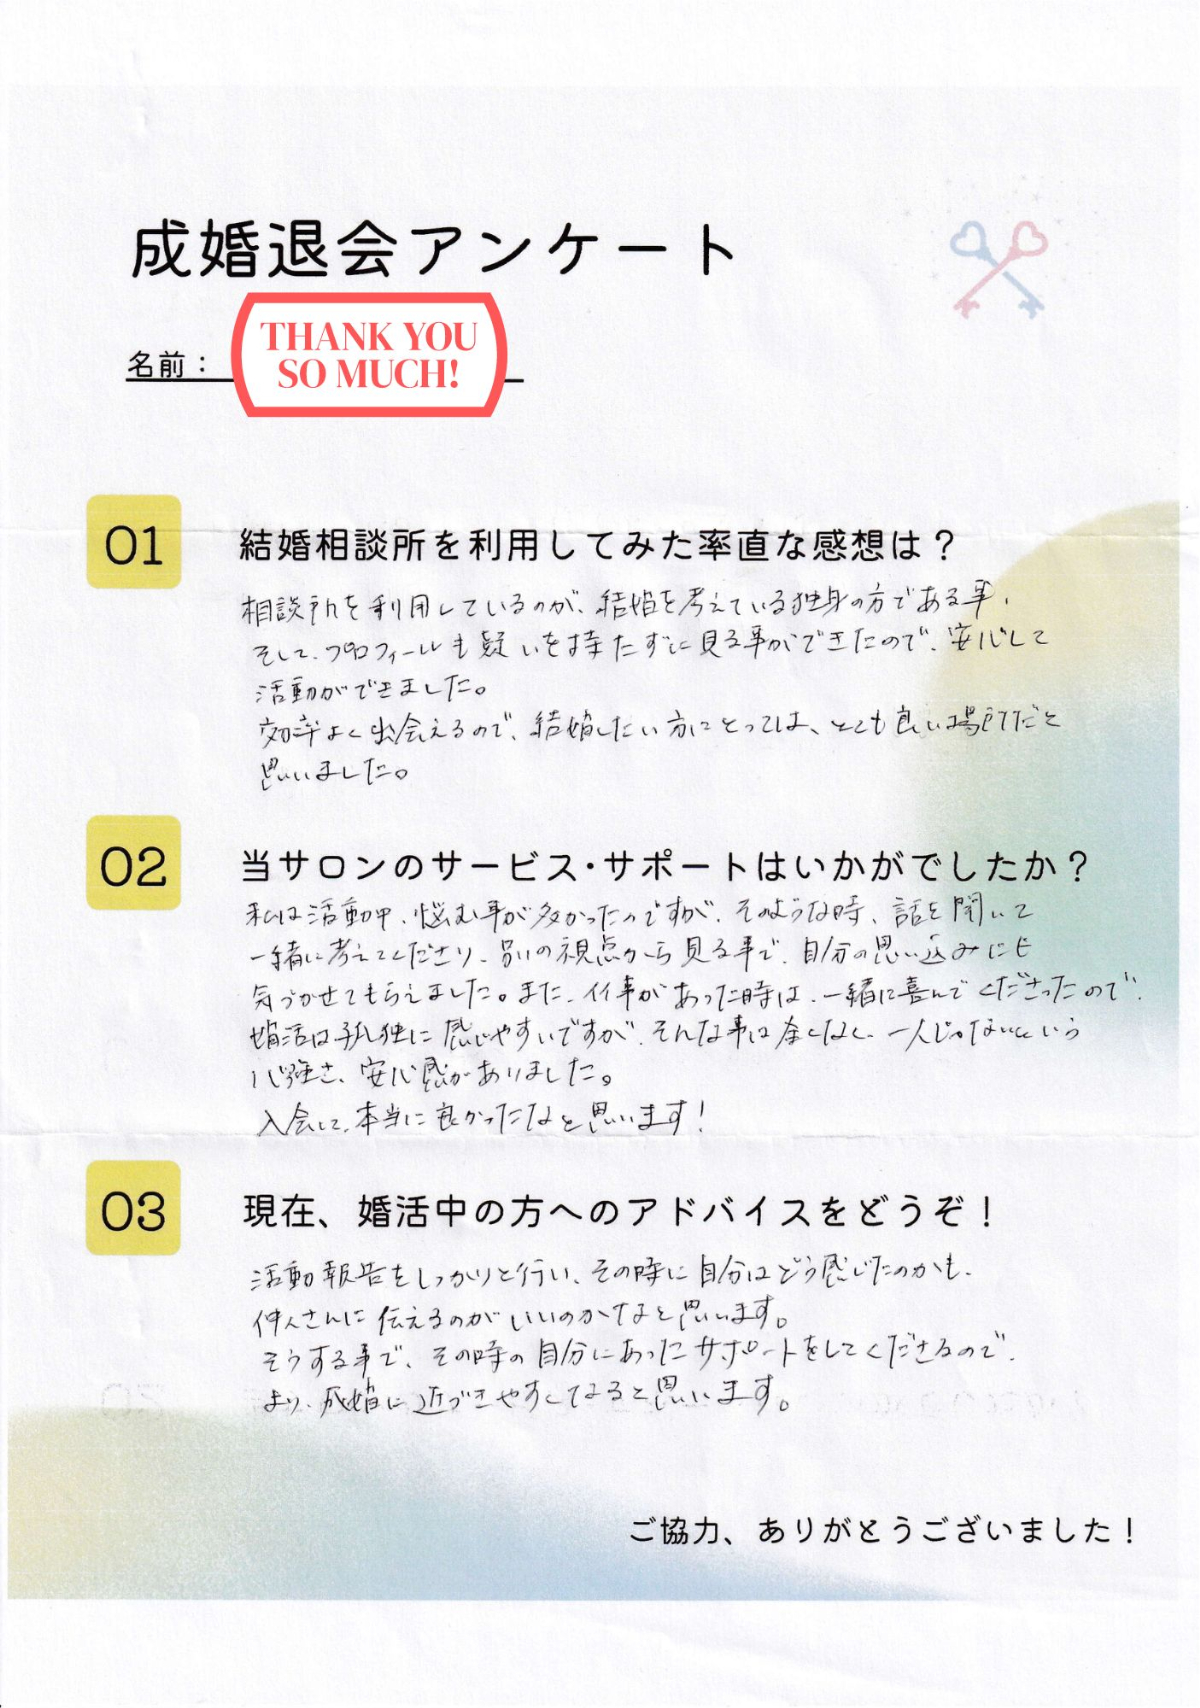 成婚退会アンケート
名前：
THANK YOU
SO MUCH!
01
結婚相談所を利用してみた率直な感想は？
相談所を利用しているのが、結婚を考えている独身の方である事、
そして、プロフィールも疑いを持たずに見る事ができたので、安心して
活動ができました。
効率よく出会えるので、結婚したい方にとっては、とても良い場所だと
思いました。
02
当サロンのサービス・サポートはいかがでしたか？
私は活動中、悩む事が多かったのですが、そのような時、話を聞いて
一緒に考えてくださり、別の視点から見る事で、自分の思い込みにも
気づかせてもらえました。また、仔事があった時は、一緒に喜んでくださったので、
婚活は孤独に感じやすいですが、そんな事は全くなく、一人じゃないという
心強さ、安心感がありました。
入会して、本当に良かったなと思います！
03
現在、婚活中の方へのアドバイスをどうぞ！
活動報告をしっかりと行い、その時に自分はどう感じたのかも、
仲人さんに伝えるのがいいのかなと思います。
そうする事で、その時の自分にあったサポートをしてくださるので、
より、成婚に近づきやすくなると思います。
ご協力、ありがとうございました！